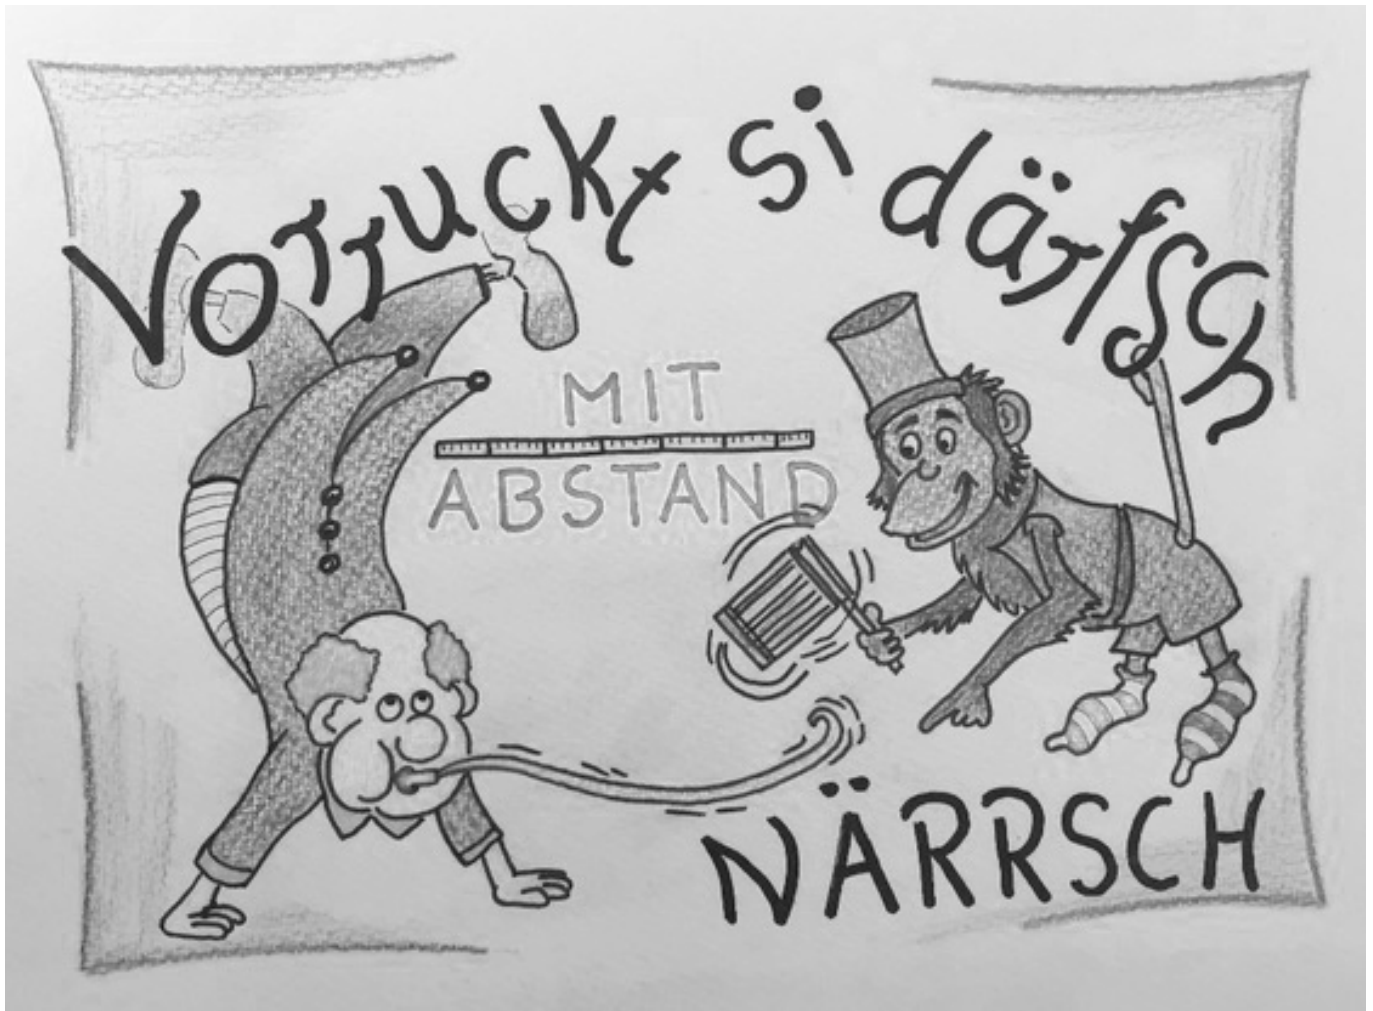 Vorruckt si därfsch
MIT
ABSTAND
NÄRRSCH